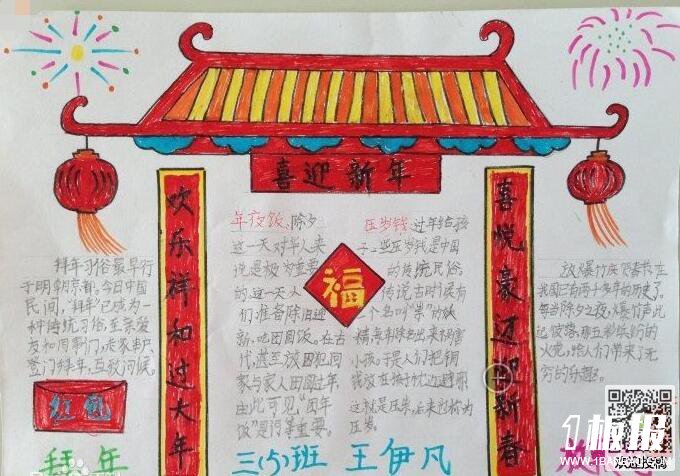 喜迎新年
欢乐祥和过大年
喜悦豪迈迎新春
福
年夜饭:除夕
这一天对华人来
说是极为重要
的.这一天人
们准备除旧迎
新.吃团圆饭。在古
代,甚至放囚犯回
家与家人团圆过年,
由此可见"团年
饭"是何等重要。
压岁钱:过年给孩
子一些压岁钱是中国
的传统民俗。
传说古时候有
个名叫"祟"的妖
小孩.于是人们把铜
钱放在孩子枕边
这就是压祟,后来
压岁。
拜年习俗最早行
于明朝京都,今日中国
民间,"拜年"已成为一
种传统习俗.至亲爱
友和同事门,走家串户
登门拜年、互致问候。
放爆竹庆贺春节,在
我国已有两千多年的历史了。
每当除夕之夜,爆竹声此
起彼落,那五彩缤纷的
火花,给人们带来了无
穷的乐趣。
红包
拜年
三(5)班 王伊凡
板报